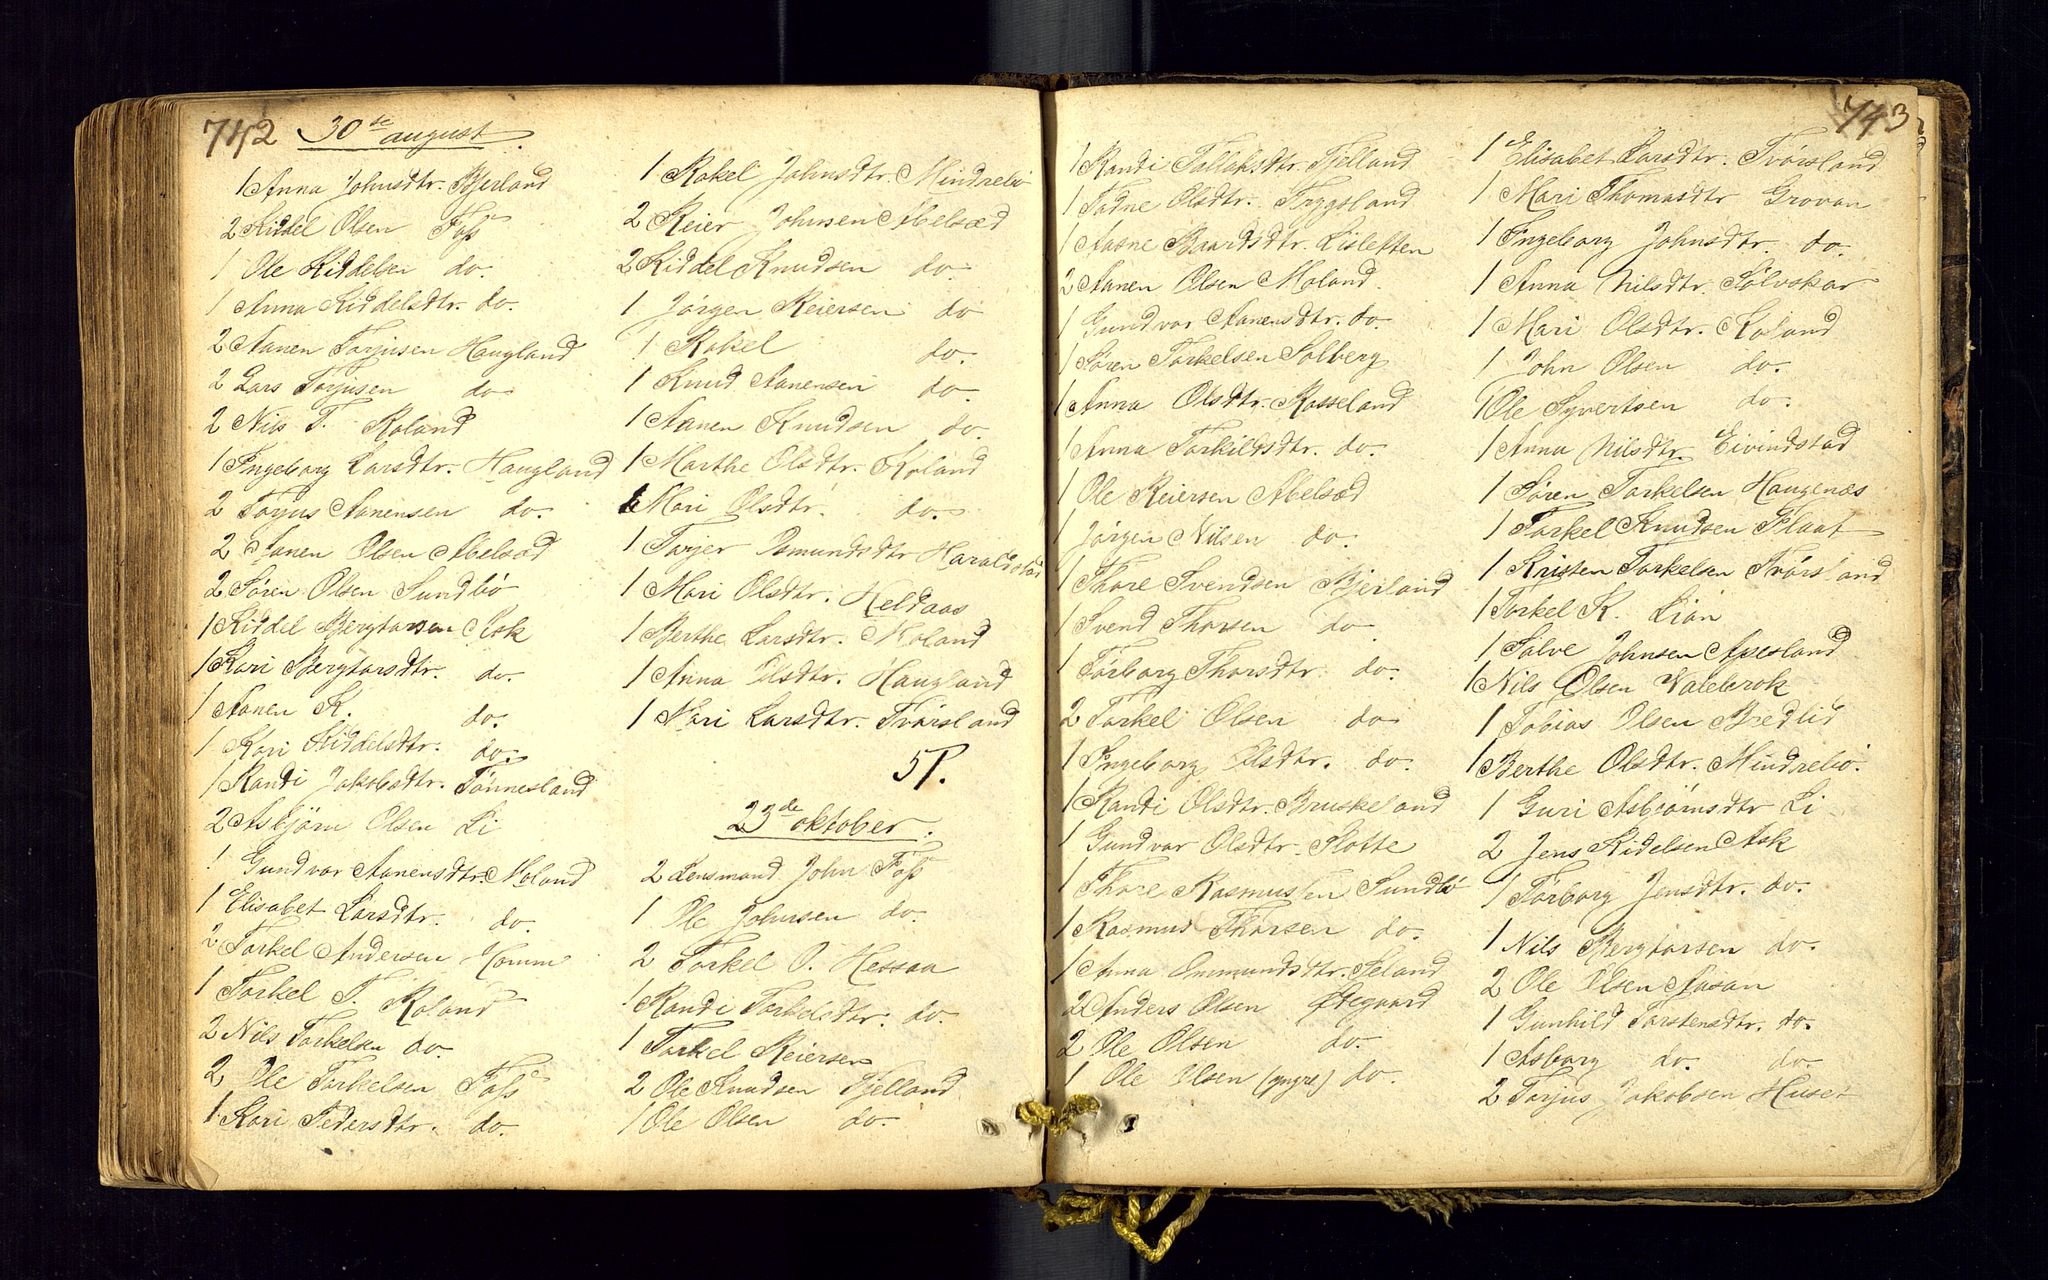 742 30te august.
1 Anna Johnsdtr. Bjerland
2 Kiddel Olsen Foss
1 Ole Kiddelsen do.
1 Anna Kiddelsdtr. do.
2 Aanen Torjusen Haugland
2 Lars Torjusen do
2 Nils T. Roland
1 Ingeborg Larsdtr. Haugland
2 Torjus Aanensen do.
2 Aanen Olsen Abelsæd
2 Søren Olsen Sundbø
1 Kiddel Bergtorsen Ask
1 Kari Bergtorsdtr. do.
1 Aanen K. do.
1 Kari Kiddelsdtr. do.
1 Randi Jakobsdtr. Tønnesland
2 Asbjørn Olsen Li
1 Gundvor Aanensdtr. Moland
1 Elisabet Larsdtr. do.
2 Torkel Andersen Homm
1 Torkel T. Roland
2 Nils Torkelsen do.
2 Ole Torkelsen Foss
1 Kari Pedersdtr. do.
1 Rakel Johnsdtr. Mindrebø
2 Reier Johnsen Abelsæd
2 Kiddel Knudsen do
1 Jørgen Reiersen do
1 Rakel do.
1 Knud Aanensen do.
1 Aanen Knudsen do.
1 Marthe Olsdtr. Roland
1 Mari Olsdtr. do.
1 Torjer Osmundsdtr Haraldstad
1 Mari Olsdtr. Heldaas
1 Berthe Larsdtr. Moland
1 Anna Olsdtr. Haugland
1 Mari Larsdtr. Tvørsland
51.
23de oktober.
2 Lensmand John Foss
1 Ole Johnsen do.
2 Torkel O. Hessaa
1 Randi Torkelsdtr. do.
1 Torkel Reiersen
2 Ole Knudsen Fjelland
1 Ole Olsen do.
743
1 Randi Tallaksdtr. Fjelland
1 Tadne Olsdtr. Trygsland
1 Aasne Baardsdtr. Lisletten
2 Aanen Olsen Moland.
1 Gundvor Aanensdtr. do.
1 Søren Torkelsen Solberg
1 Anna Olsdtr. Rosseland
1 Anna Torkildsdtr. do.
1 Ole Reiersen Abelsæd
1 Jørgen Nilsen do.
1 Thore Svendsen Bjerland
1 Svend Thorsen do.
1 Tørborg Thorsdtr. do.
2 Torkel Olsen do
1 Ingeborg Olsdtr. do.
1 Randi Olsdtr. Bruskeland
1 Gundvor Olsdtr. Slotte
1 Thore Rasmussen Sundbø
1 Rasmus Thorsen do.
1 Anna Ommundsdtr. Seland
2 Anders Olsen Øtegaard
2 Ole Olsen do.
1 Ole Olsen (yngre) do.
1 Elisabet Larsdtr. Tvørsland
1 Mari Thomasdtr Grovan
1 Ingeborg Johnsdtr. do.
1 Anna Nilsdtr. Sølvskar
1 Mari Olsdtr. Roland
1 John Olsen do.
1 Ole Syvertsen do.
1 Anna Nilsdtr. Eivindstad
1 Søren Torkelsen Haugenæs
1 Torkel Knudsen Flaat
1 Kristen Torkelsen Tvørsland
1 Torkel K. Lian
1 Salve Johnsen Apesland
1 Nils Olsen Valebrok
1 Tobias Olsen Bredlid
1 Berthe Olsdtr. Mindrebø.
1 Guri Asbjørnsdtr Li
2 Jens Kidelsen Ask
1 Tørborg Jensdtr. do.
1 Nils Bergtorsen do.
2 Ole Olsen Aasan
1 Gunhild Torstensdtr. do.
1 Asborg do. do.
2 Torjus Jakobsen Huser